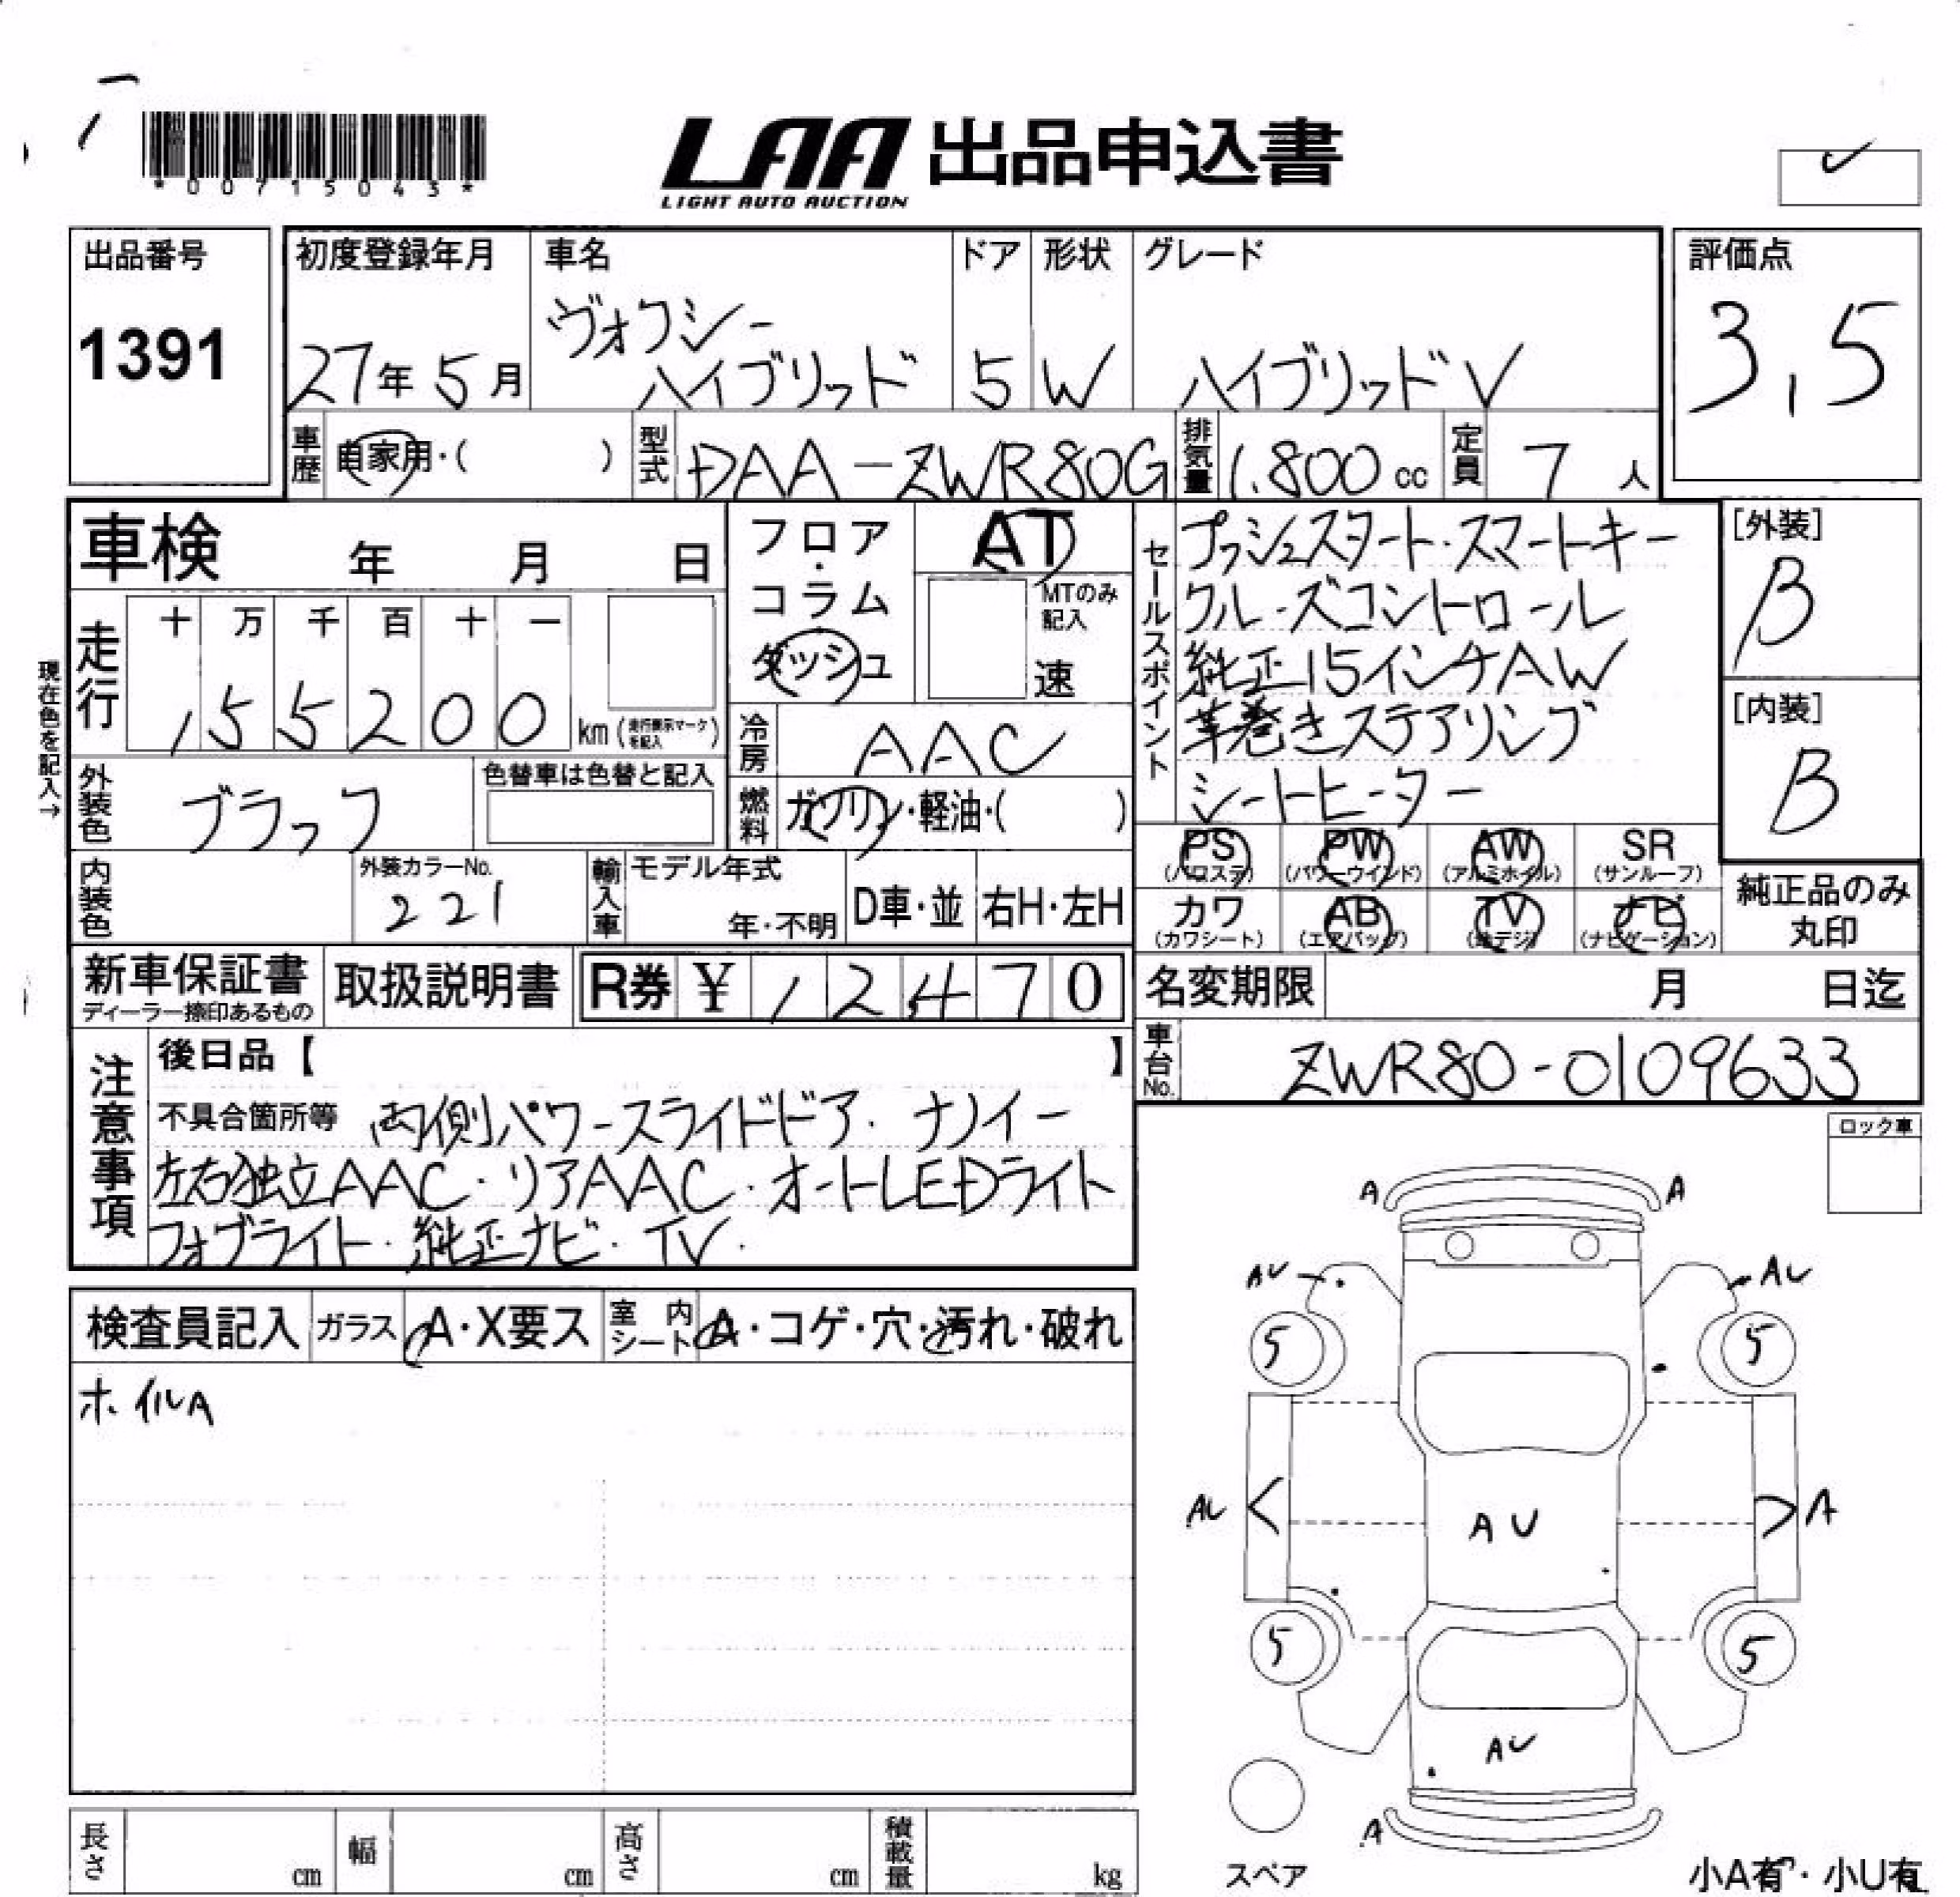 *00715043*
LAA 出品申込書
LIGHT AUTO AUCTION
出品番号
1391
初度登録年月
27年5月
車名
ヴォクシー
ハイブリッド
ドア
5
形状
W
グレード
ハイブリッドV
評価点
3,5
車歴
自家用・( )
型式
DAA-ZWR80G
排気量
1.800 cc
定員
7 人
車検 年 月 日
フロア・コラム
ダッシュ
AT
MTのみ記入
速
セールスポイント
プッシュスタート・スマートキー
クルーズコントロール
純正15インチAW
革巻きステアリング
シートヒーター
[外装]
B
[内装]
B
現在色を記入→
走行
十 万 千 百 十 一
155200 km(走行表示マークを記入)
冷房
AAC
外装色
ブラック
色替車は色替と記入
燃料
ガソリン・軽油・( )
内装色
外装カラーNo.
221
輸入車
モデル年式
年・不明
D車・並
右H・左H
PS (パワステ)
PW (パワーウインド)
AW (アルミホイル)
SR (サンルーフ)
カワ (カワシート)
AB (エアバッグ)
TV (地デジ)
ナビ (ナビゲーション)
純正品のみ
丸印
新車保証書
ディーラー捺印あるもの
取扱説明書
R券 ¥ 12470
名変期限 月 日迄
車台No.
ZWR80-0109633
注意事項
後日品【 】
不具合箇所等 両側パワースライドドア・ナノイー
左右独立AAC・リアAAC・オートLEDライト
フォグライト・純正ナビ・TV.
ロック車
検査員記入
ガラス
A・X要ス
室内シート
A・コゲ・穴・汚れ・破れ
ホイルA
A A
AU AU
5 5
AU AU A
5 5
AU
A
スペア
小A有・小U有
長さ cm
幅 cm
高さ cm
積載量 kg